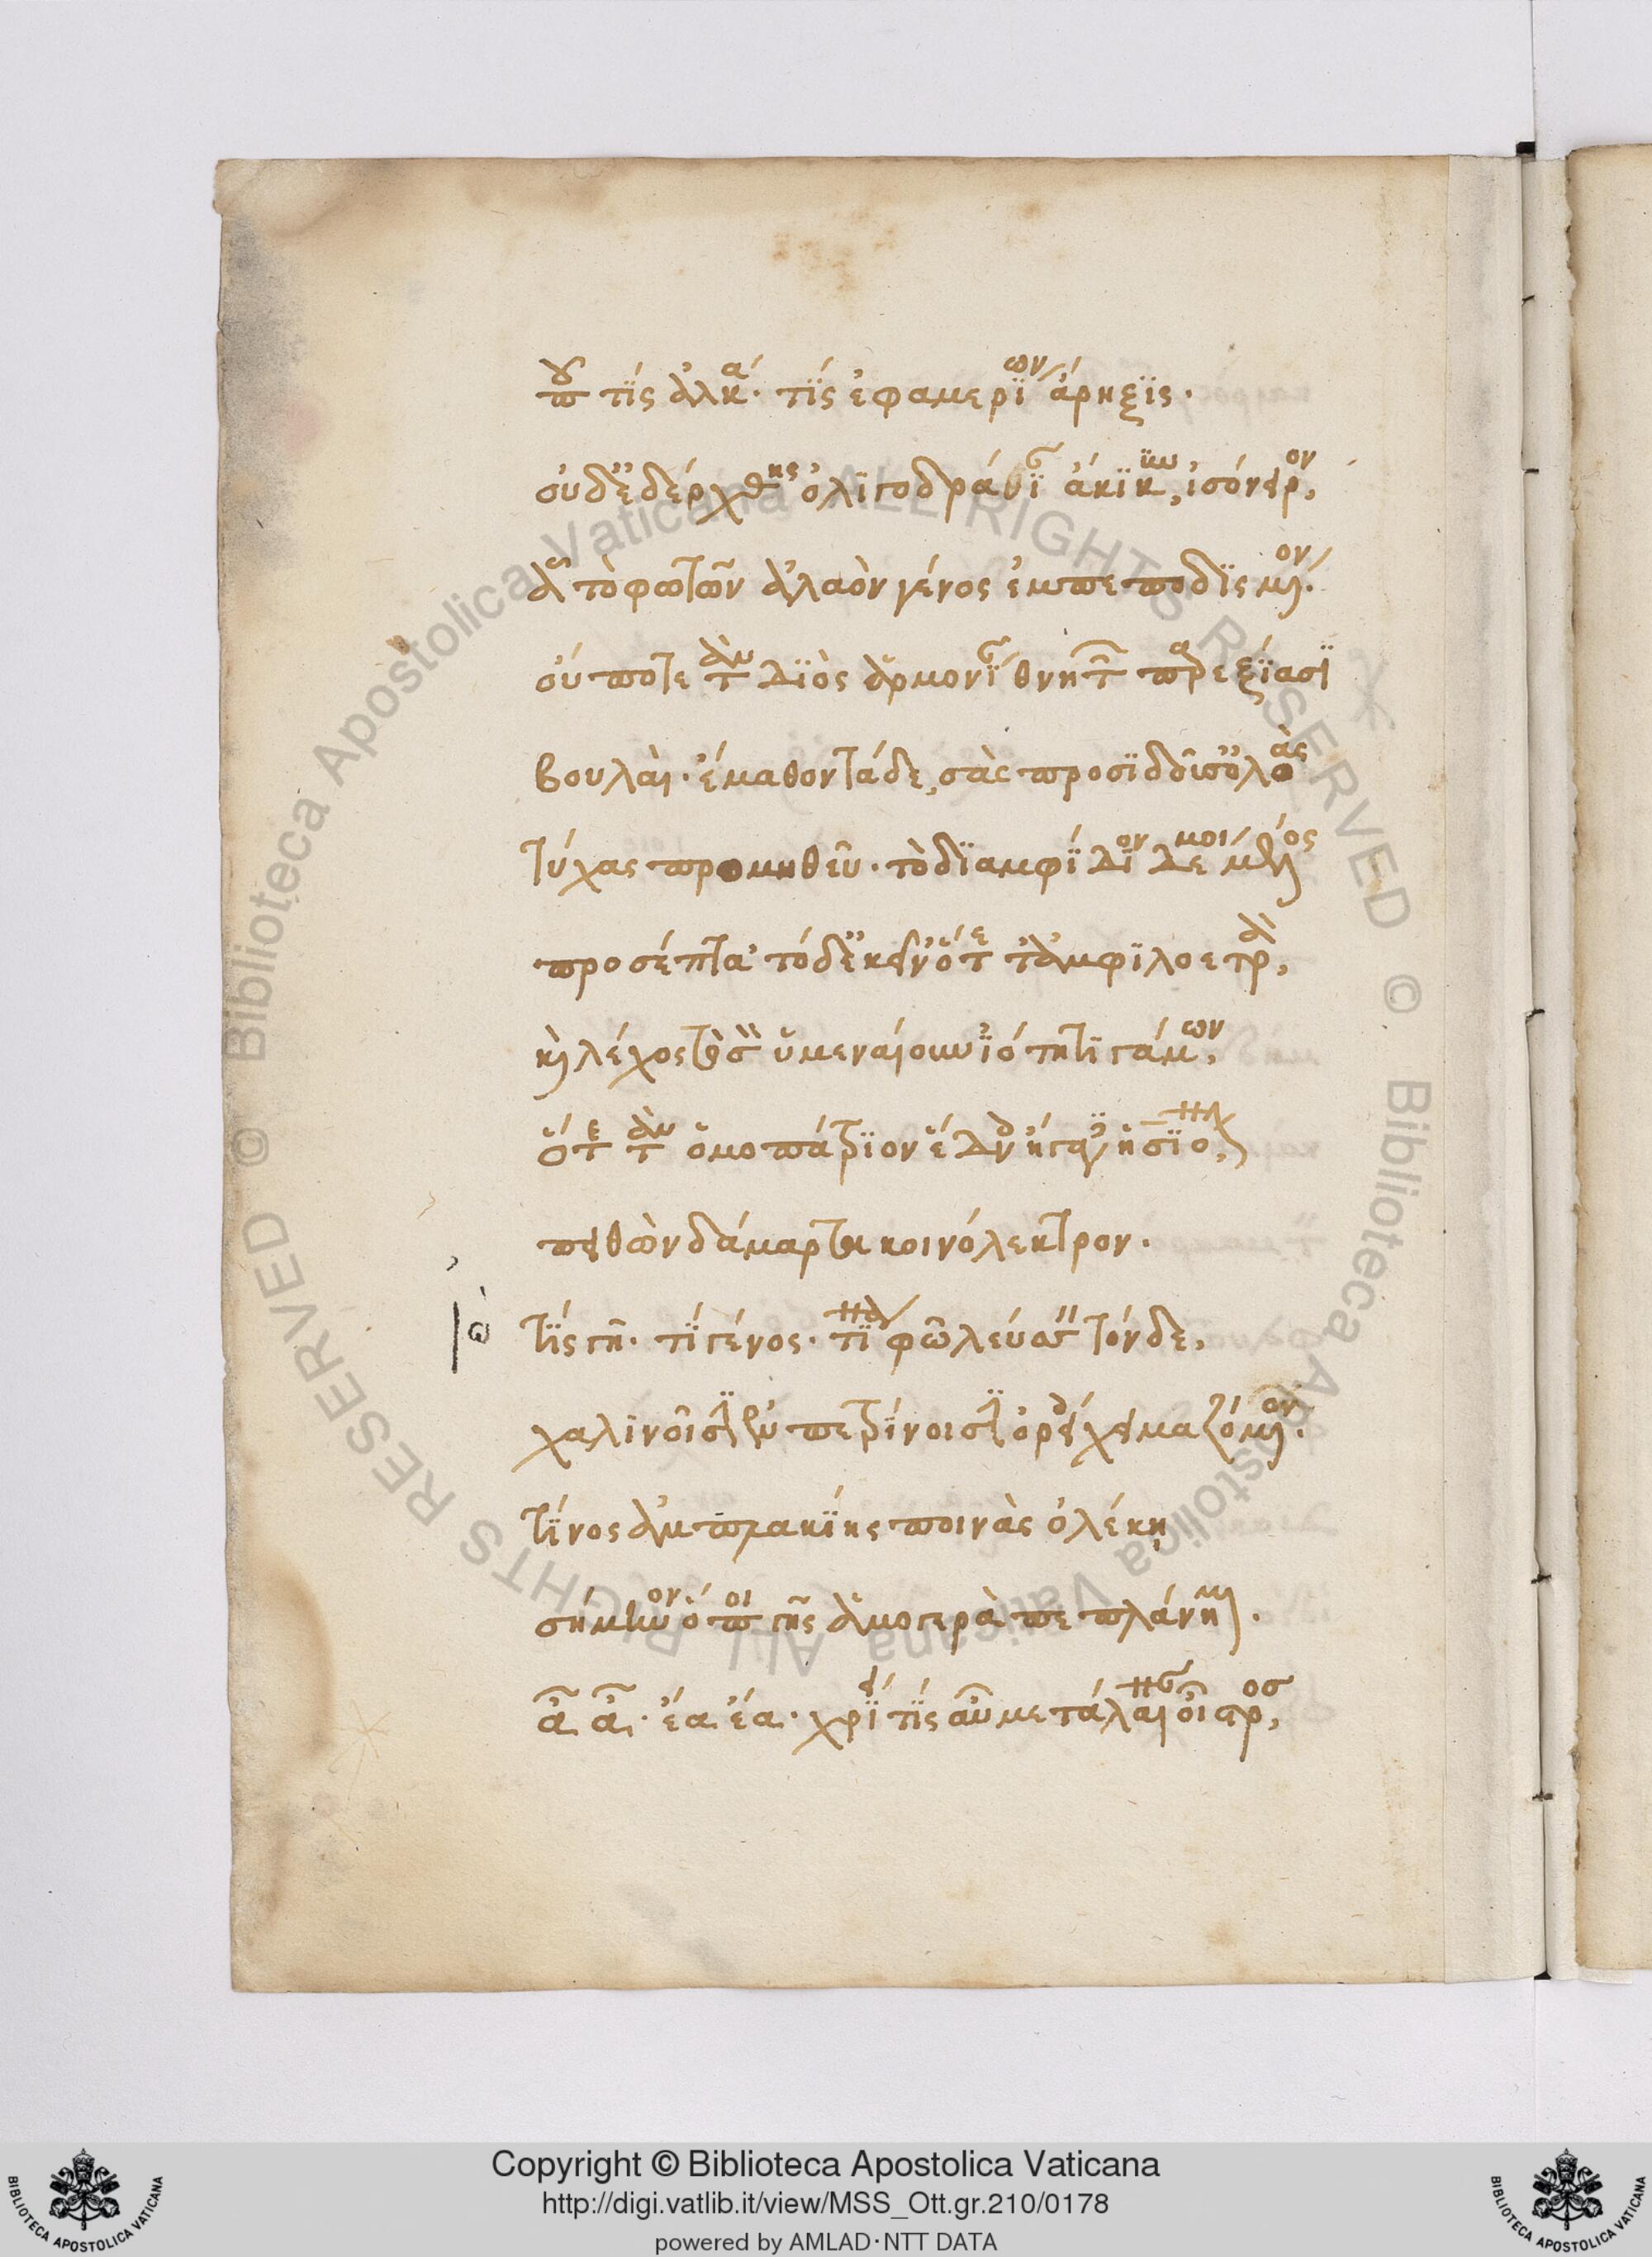 που τίς ἀλκά· τίς ἐφαμερίων ἄρηξις·
οὐδ' ἐδέρχθης ὀλιγοδρανίαν ἄκικυν, ἰσόνειρον,
ᾇ τὸ φωτῶν ἀλαὸν γένος ἐμπεποδισμένον·
οὔποτε τὰν Διὸς ἁρμονίαν θνητῶν παρεξίασι
βουλαί· ἔμαθον τάδε, σὰς προσιδοῦσ' ὀλοὰς
τύχας προμηθεῦ· τὸ διαμφίδιον δέ μοι μέλος
προσέπτα τόδ' ἐκεῖν' ὅτε τ' ἀμφὶ λοετρὰ,
καὶ λέχος σὸν ὑμεναίουν ἰότητι γάμων,
ὅτε τὰν ὁμοπάτριον ἕδνοις ἤγαγες ἡσιόναν,
πειθὼν δάμαρτα κοινόλεκτρον·
ἰὼ τίς γῆ· τί γένος· τίνα φῶ λεύσσειν τόνδε,
χαλινοῖσιν ἐν πετρίνοισιν ὁρᾶν χειμαζόμενον·
τίνος ἀμπλακίης ποινὰς ὀλέκῃ
σήμηνον ὅποι γῆς ἡ μογερὰ πεπλάνημαι·
ἆ ἆ· ἔα ἔα· χρίει τίς αὖ με τάλαιναν οἶστρος,
Copyright © Biblioteca Apostolica Vaticana
http://digi.vatlib.it/view/MSS_Ott.gr.210/0178
powered by AMLAD·NTT DATA